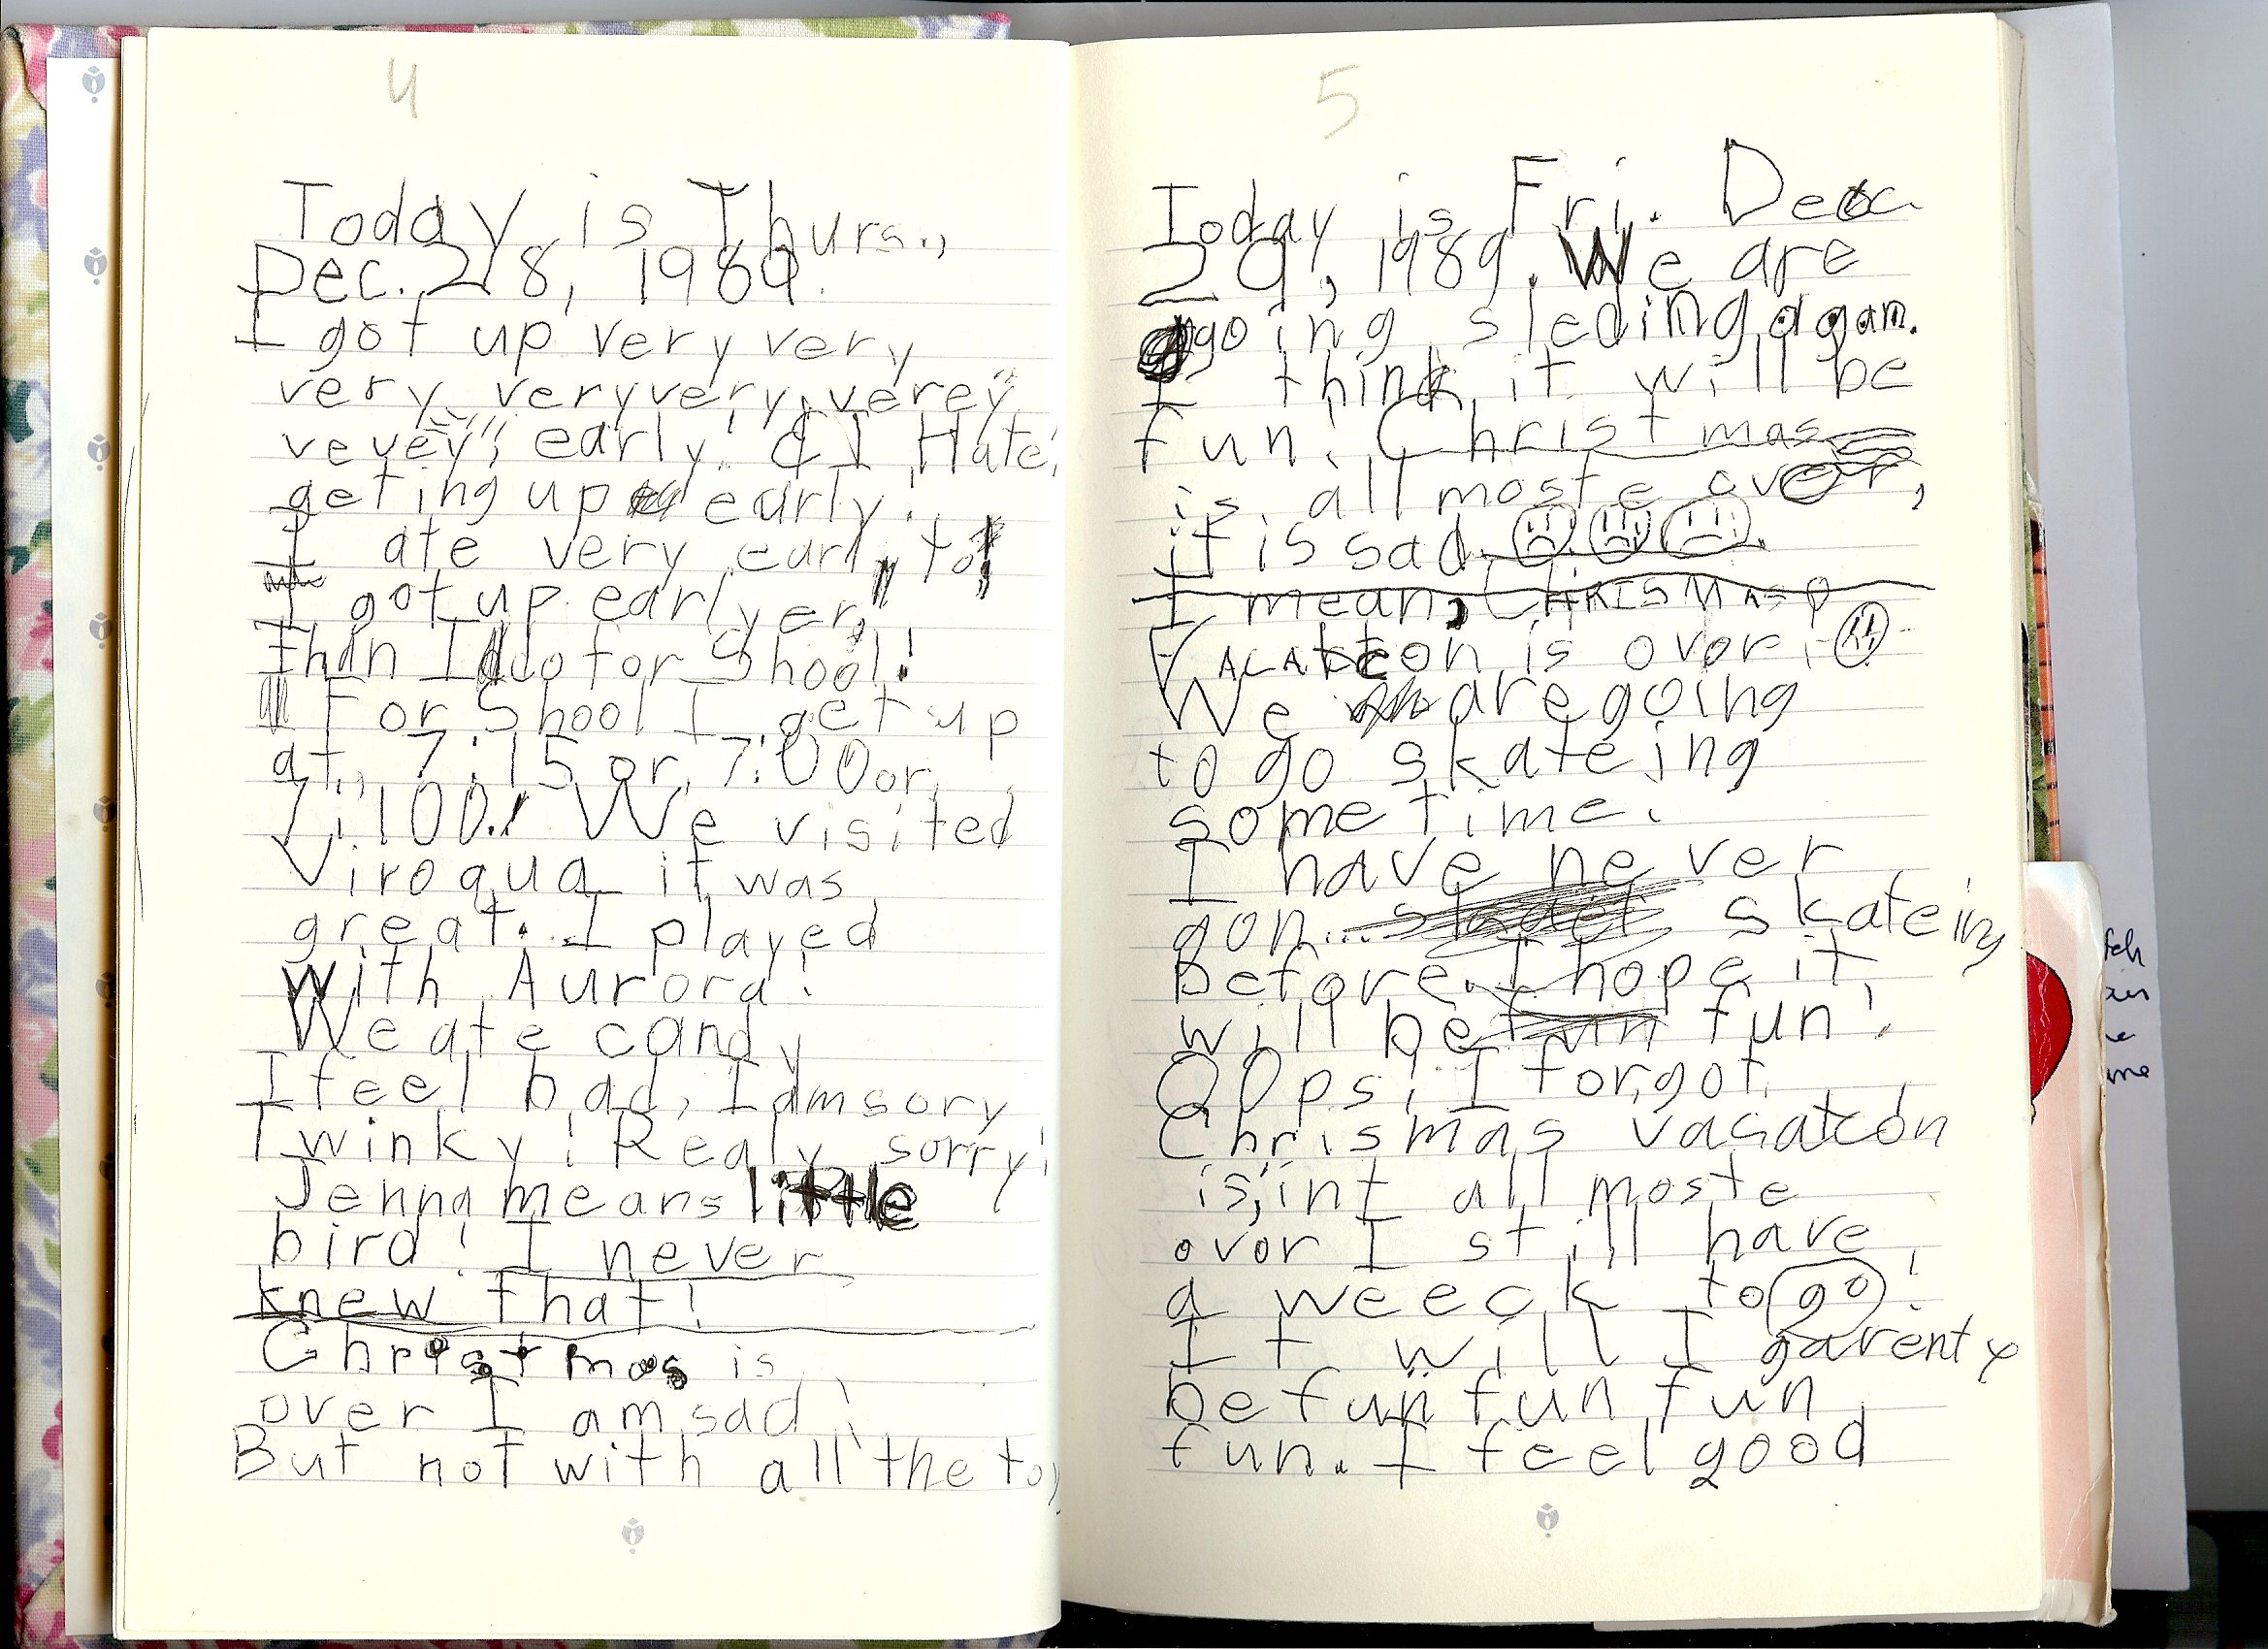 4
Today is Thurs.,
Dec. 28, 1989.
I got up very very
very veryvery, verey
vevey, early! & I Hate
geting up early.
I ate very early to!
I got up earlyer,
than I do for Shool!
For Shool I get up
at, 7:15 or, 7:00 or,
7:100! We visited
Viroqua it was
great. I played
with Aurora!
We ate candy
I feel bad, I am sory
Twinky! Realy sorry!
Jenna means little
bird! I never
knew that!
Christmas is
over I am sad!
But not with all the toy
5
Today is Fri. Dec.
29, 1989. We are
going sleding agan.
I think it will be
fun! Christmas
is all moste over,
it is sad.
I mean, CHRISMAS
VACATEon is over.
We are going
to go skateing
some time.
I have never
gon... skateing
Before. I hope it
will be fun fun!
OOps! I forgot
Chrismas vacaton
is,int all moste
ovor I still have
a weeck to go!
It will I garenty
be fun fun fun
fun. I feel good
feh
me